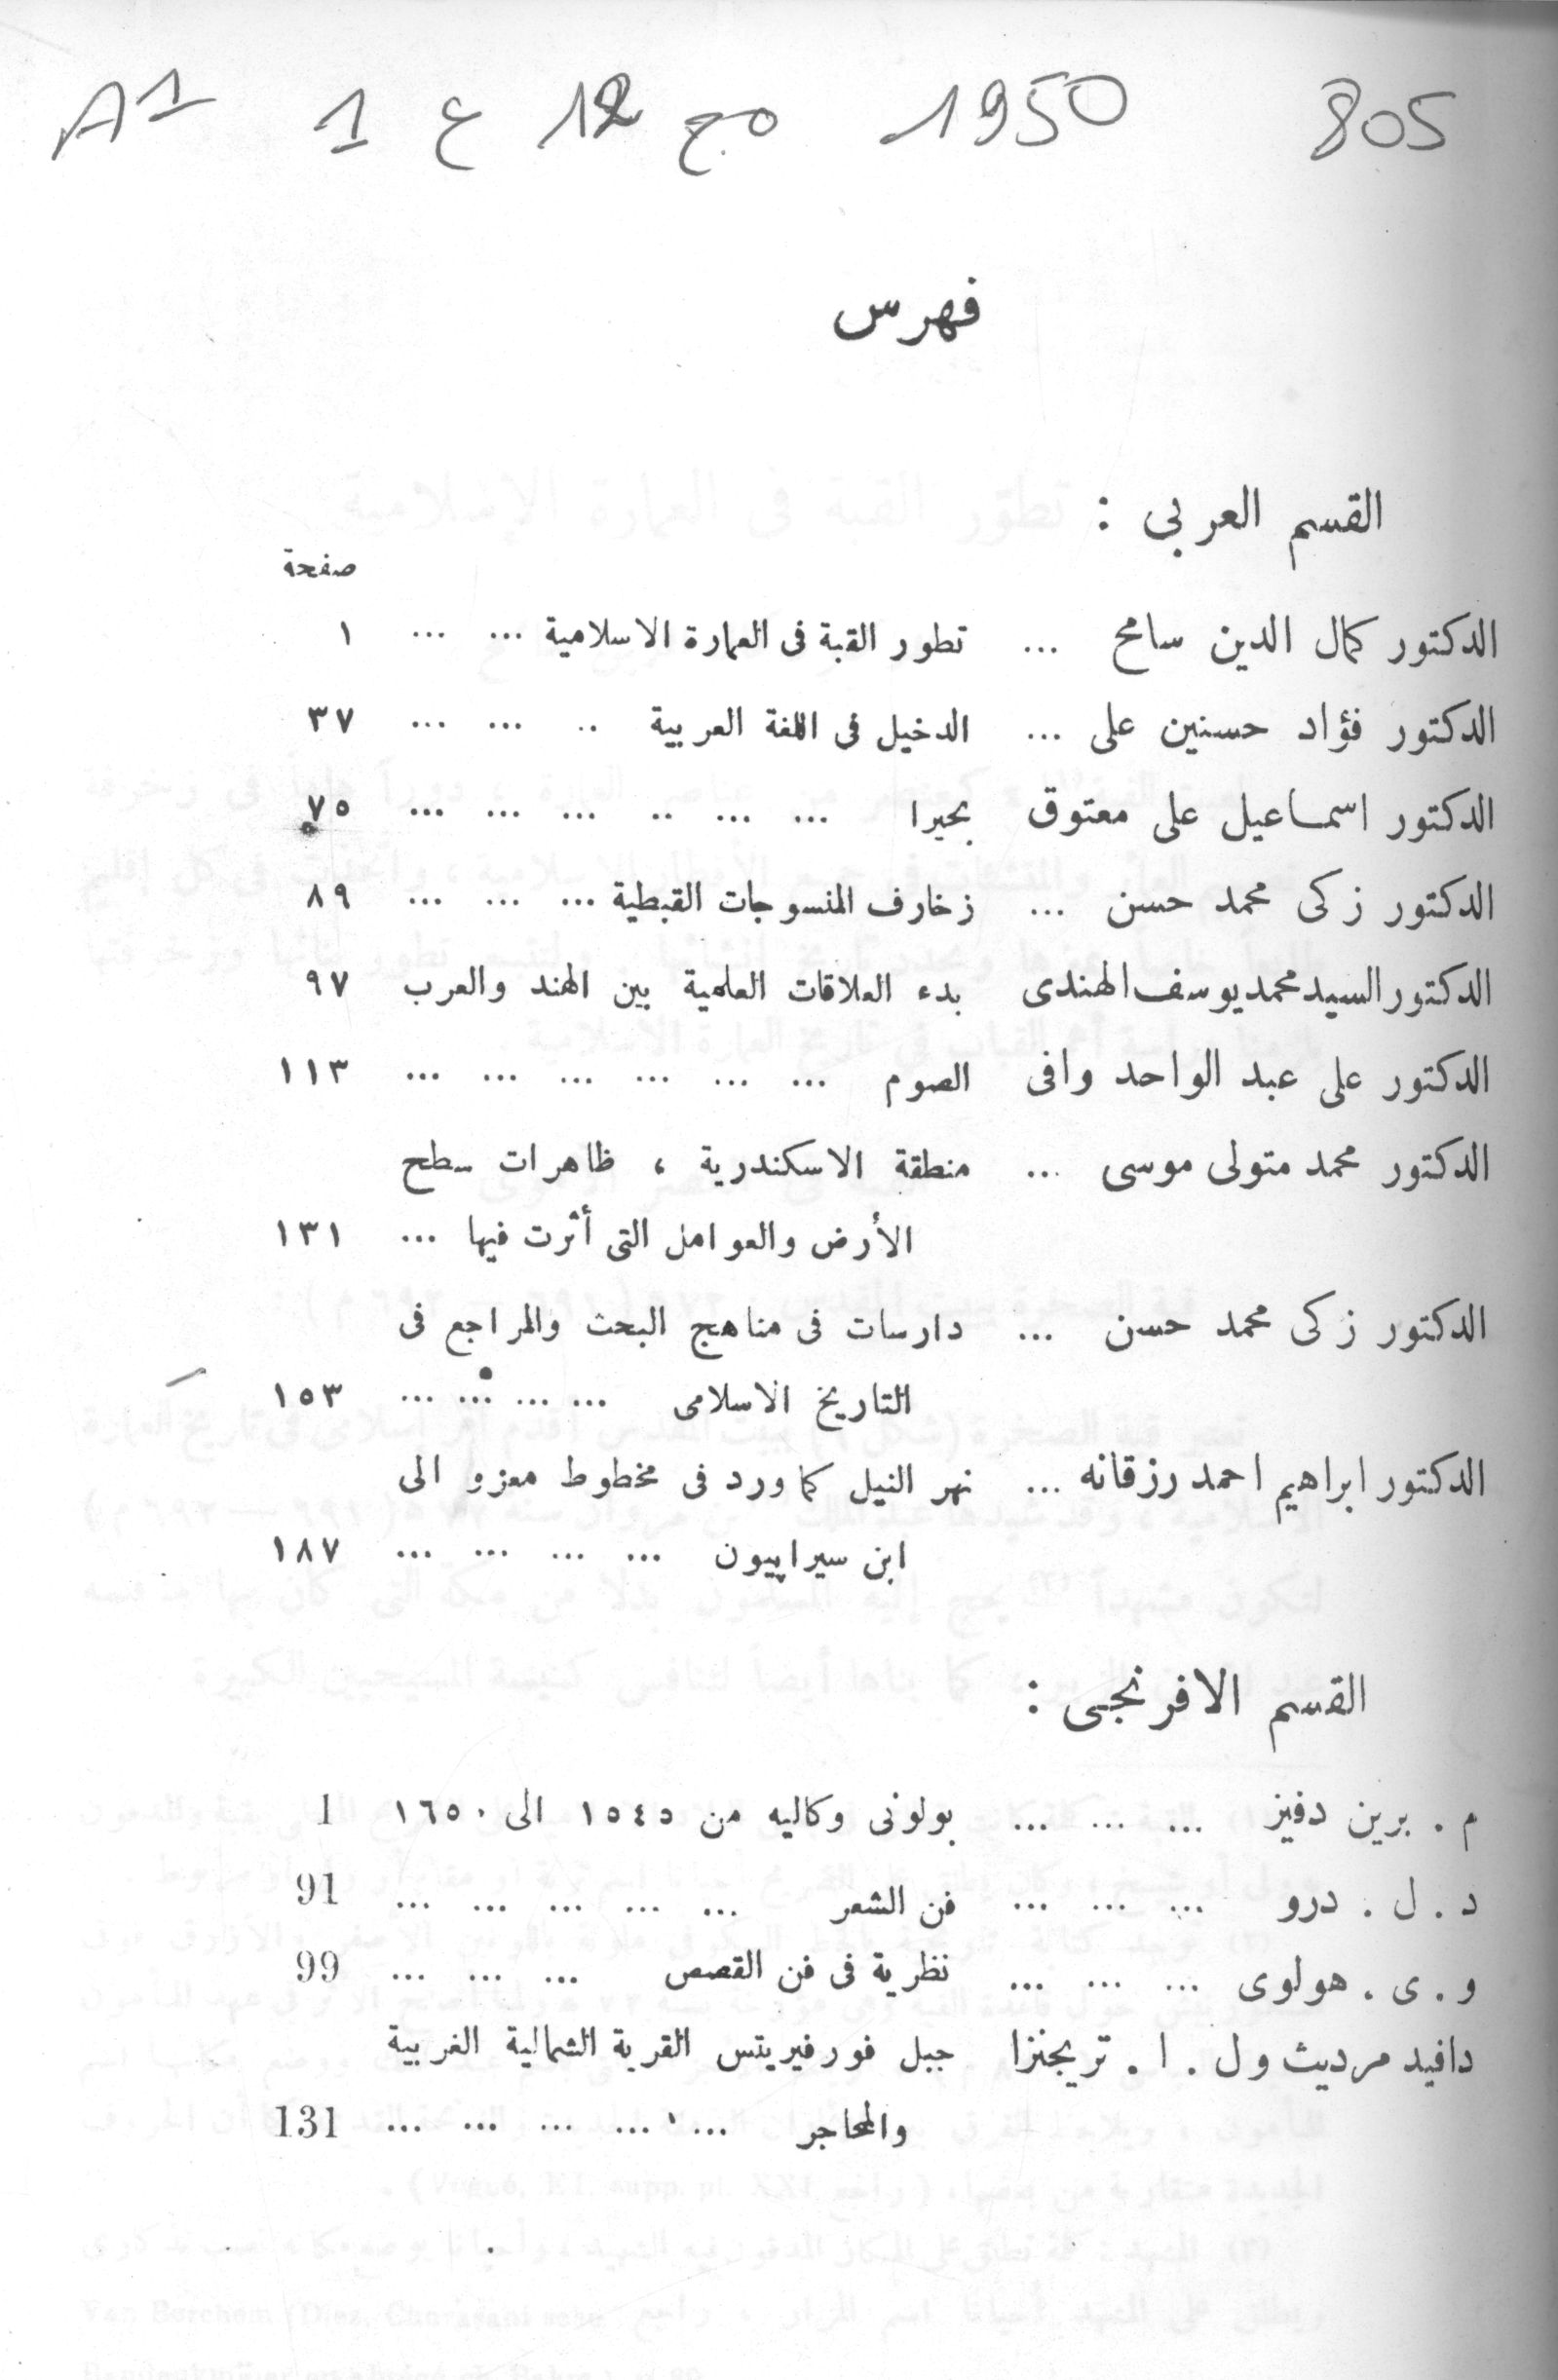 805 1950 مج 12 ع 1 A1
فهرس
القسم العربى :
صفحة
الدكتور كمال الدين سامح ... تطور القبة فى العمارة الاسلامية ... ... ... ١
الدكتور فؤاد حسنين على ... الدخيل فى اللغة العربية .. ... ... ٣٧
الدكتور اسماعيل على معتوق بحيرا ... ... .. ... ... ... ٧٥
الدكتور زكى محمد حسن ... زخارف المنسوجات القبطية ... ... ... ٨٩
الدكتور السيد محمد يوسف الهندى بدء العلاقات العلمية بين الهند والعرب ٩٧
الدكتور على عبد الواحد وافى الصوم ... ... ... ... ... ... ١١٣
الدكتور محمد متولى موسى ... منطقة الاسكندرية ، ظاهرات سطح
الأرض والعوامل التى أثرت فيها ... ١٣١
الدكتور زكى محمد حسن ... دارسات فى مناهج البحث والمراجع فى
التاريخ الاسلامى ... ... ... ... ١٥٣
الدكتور ابراهيم احمد رزقانه ... نهر النيل كما ورد فى مخطوط معزو الى
ابن سيراپيون ... ... ... ... ١٨٧
القسم الافرنجى :
م . برين دفيز ... ... ... بولونى وكاليه من ١٥٤٥ الى ١٦٥٠ 1
د . ل . درو ... ... ... فن الشعر ... ... ... ... ... 91
و . ى . هولوى ... ... ... نظرية فى فن القصص ... ... ... 99
دافيد مرديث و ل . ا . تريجنزا جبل فورفيريتس القرية الشمالية الغربية
والمحاجر ... ... ... ... ... 131